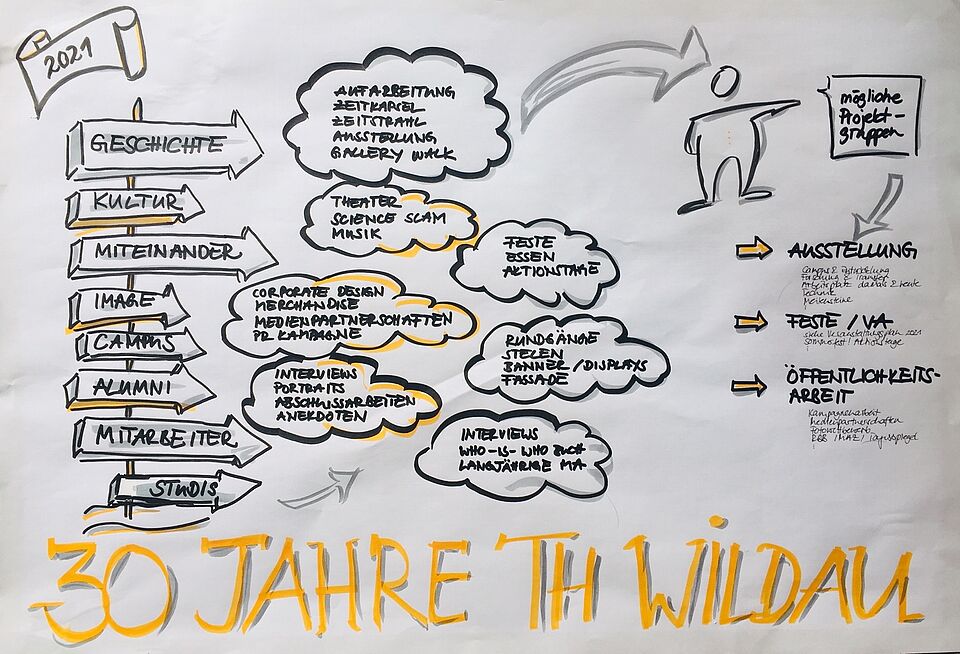 2021
GESCHICHTE
KULTUR
MITEINANDER
IMAGE
CAMPUS
ALUMNI
MITARBEITER
STUDIS
AUFARBEITUNG
ZEITKAPSEL
ZEITSTRAHL
AUSSTELLUNG
GALLERY WALK
THEATER
SCIENCE SLAM
MUSIK
FESTE
ESSEN
AKTIONSTAGE
CORPORATE DESIGN
MERCHANDISE
MEDIENPARTNERSCHAFTEN
PR KAMPAGNE
RUNDGÄNGE
STELEN
BANNER / DISPLAYS
FASSADE
INTERVIEWS
PORTRAITS
ABSCHLUSSARBEITEN
ANEKDOTEN
INTERVIEWS
WHO-IS-WHO BUCH
LANGJÄHRIGE MA
mögliche
Projekt-
gruppen
AUSSTELLUNG
Campus & Entwicklung
Forschung & Transfer
Arbeitsplatz damals & heute
Technik
Meilensteine
FESTE / VA
siehe Veranstaltungsplan 2021
Sommerfest / Aktionstage
ÖFFENTLICHKEITS-
ARBEIT
Kampagnenarbeit
Medienpartnerschaften
Fotowettbewerb
RBB / MAZ / Tagesspiegel
30 JAHRE TH WILDAU